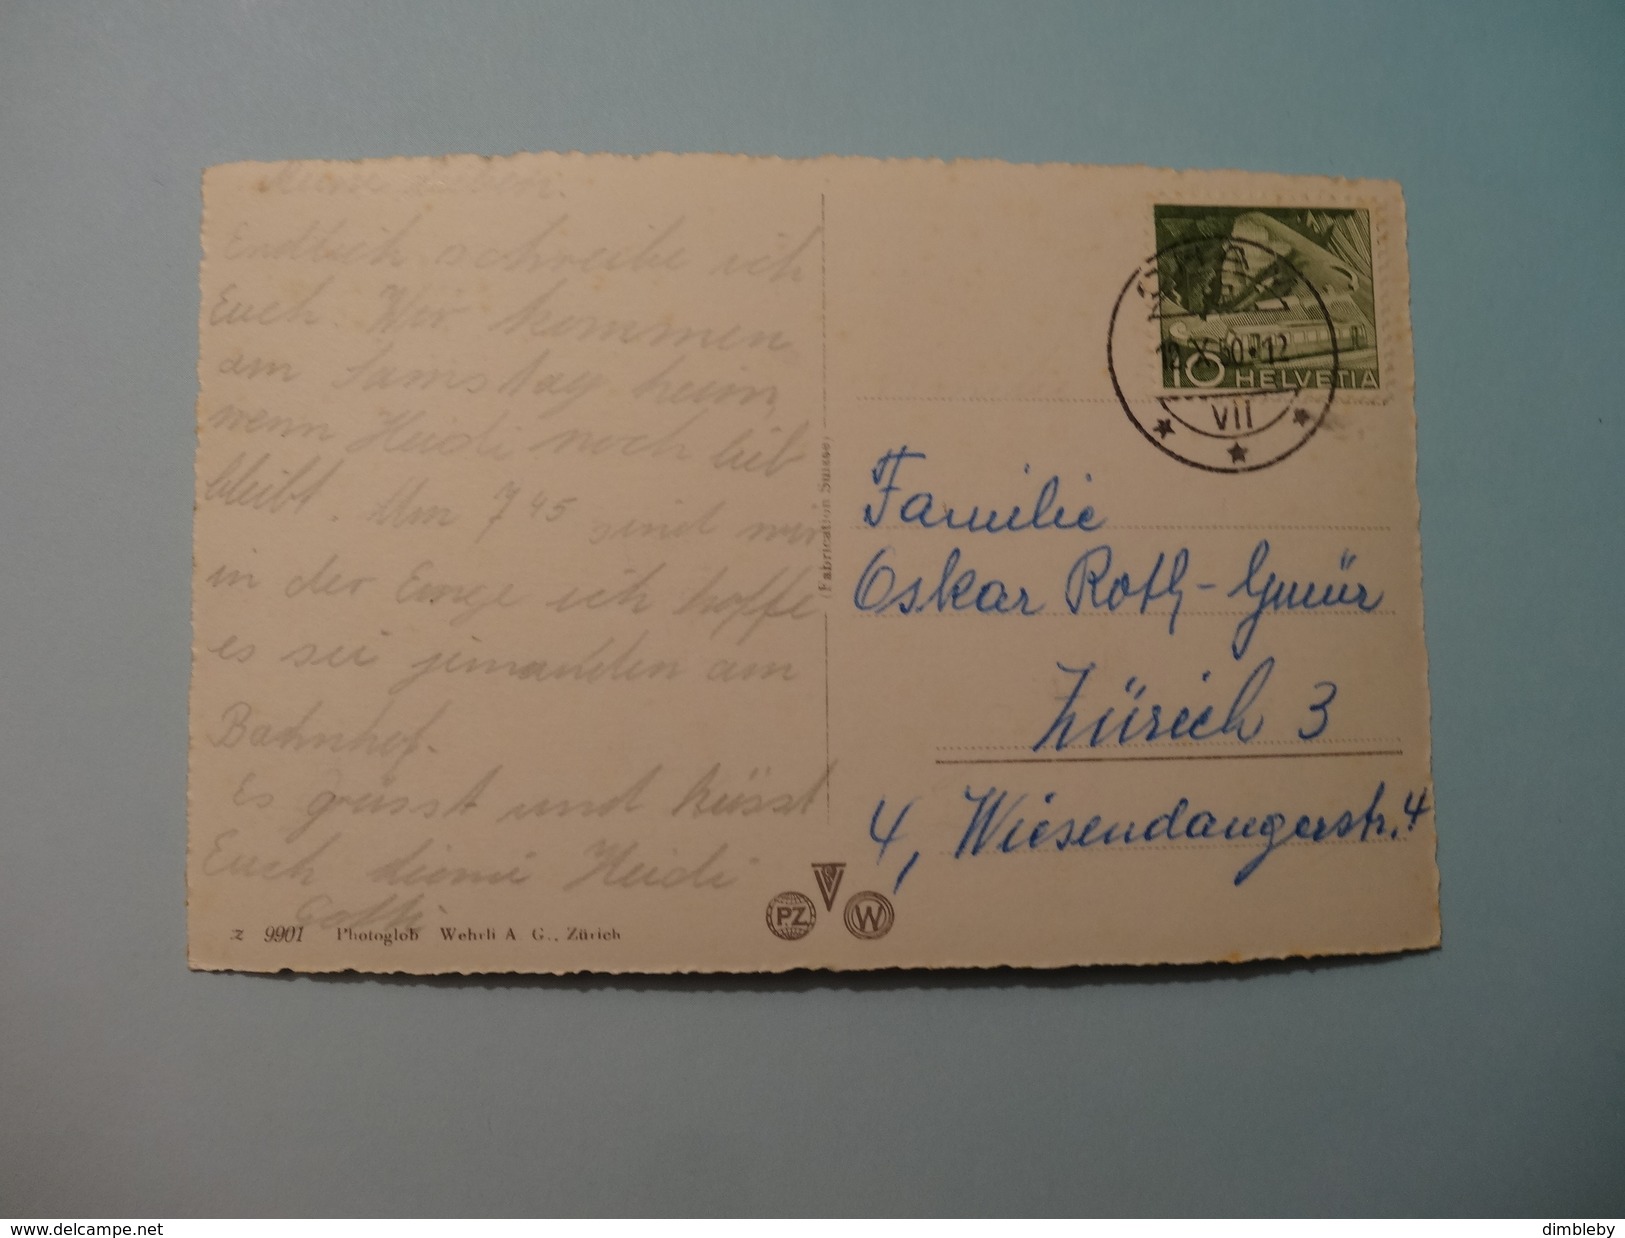 Meine Lieben.
Endlich schreibe ich
Euch. Wir kommen
am Samstag heim,
wenn Heidi noch lieb
bleibt. Um 7 45 sind wir
in der Enge ich hoffe
es sei jemanden am
Bahnhof.
Es grüsst und küsst
Euch Heidi
Gotti
z 9901 Photoglob Wehrli A. G., Zürich
(Fabrication Suisse)
PZ
W
10 HELVETIA
12.X.50.12
VII
Familie
Oskar Roth-Gmür
Zürich 3
4, Wiesendangerstr. 4
www.delcampe.net
dimbleby